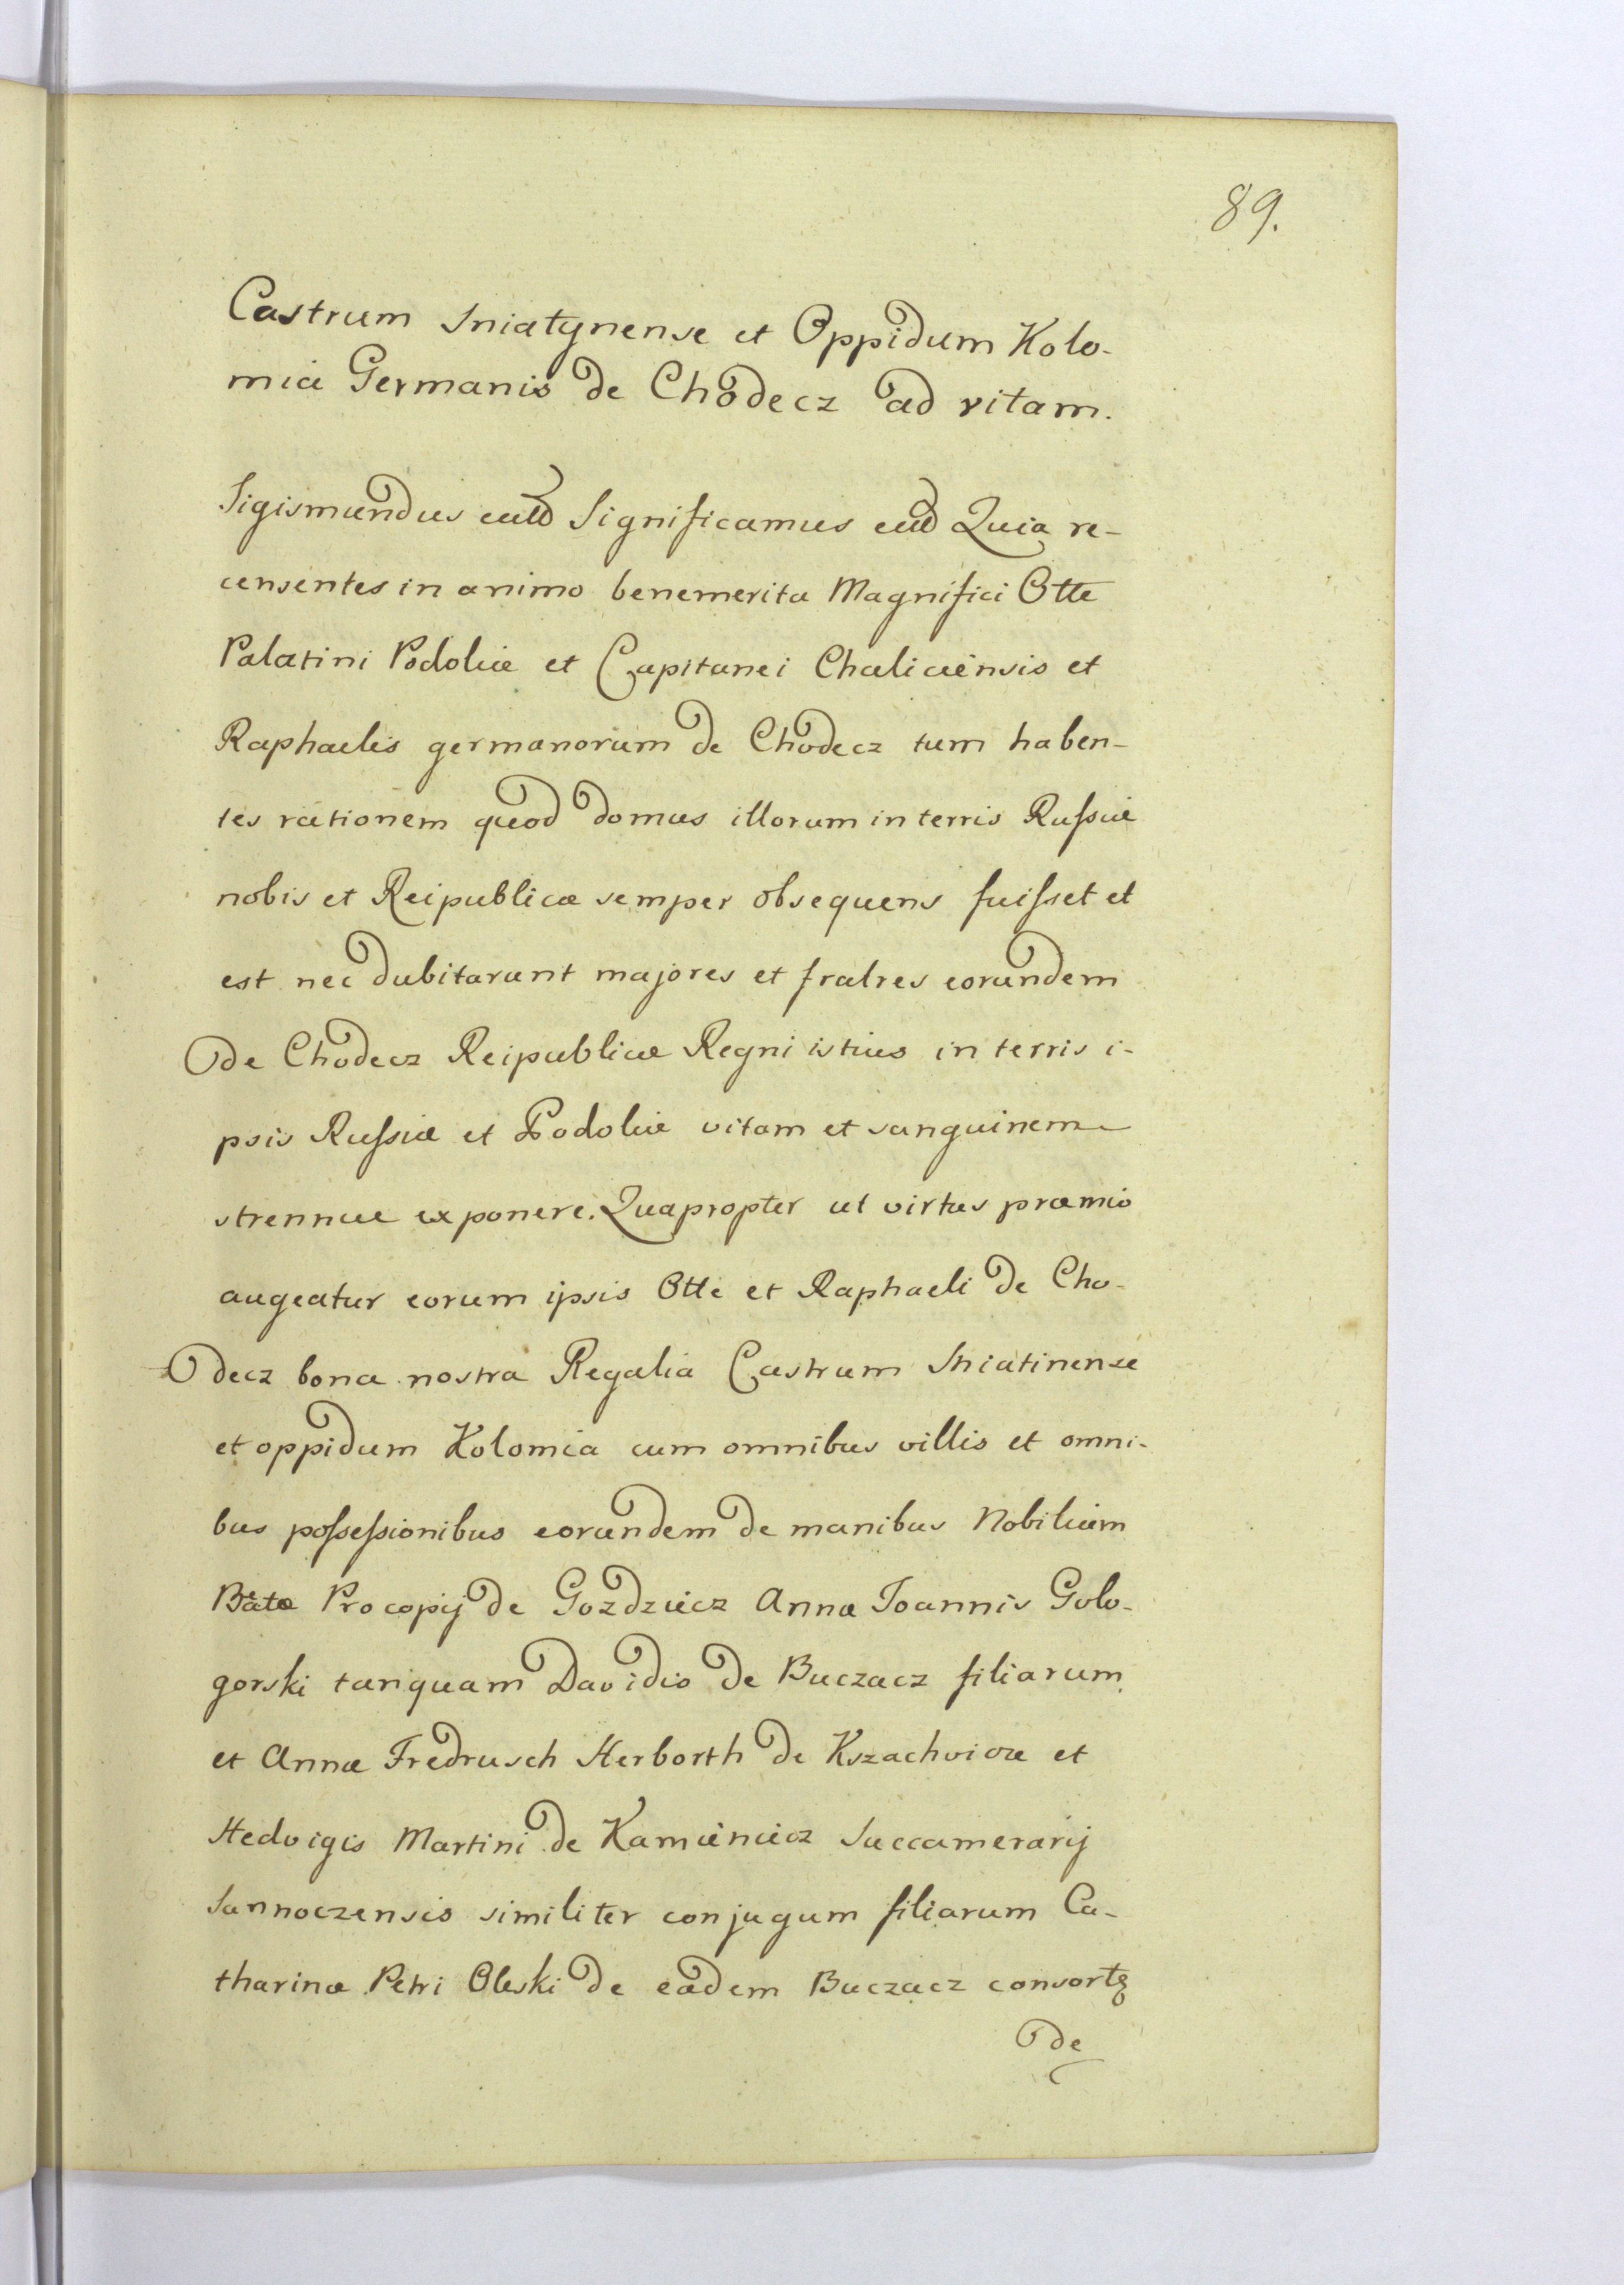 89.
Castrum Sniatynense et Oppidum Kolo-
mia Germanis de Chodecz ad vitam.
Sigismundus Significamus Quia re-
censentes in animo benemerita Magnifici Otte
Palatini Podoliæ et Capitanei Haliciensis et
Raphaelis germanorum de Chodecz tum haben-
tes rationem quod domus illorum in terris Russiæ
nobis et Reipublicæ semper obsequens fuisset et
est nec dubitarunt majores et fratres eorundem
de Chodecz Reipublicæ Regni istius in terris i-
psis Russiæ et Podoliæ vitam et sanguinem
strennue exponere. Quapropter ut virtus præmio
augeatur eorum ipsis Otte et Raphaeli de Cho-
decz bona nostra Regalia Castrum Sniatinense
et oppidum Kolomia cum omnibus villis et omni-
bus possessionibus eorundem de manibus Nobilium
Procopij de Gozdziecz Annæ Joannis Golo-
gorski tanquam Davidis de Buczacz filiarum
et Annæ Fredrusch Herborth de et
Hedvigis Martini de Kamieniecz Succamerarij
Sannoczensis similiter conjugum filiarum Ca-
tharinæ Petri Oleski de eadem Buczacz
de